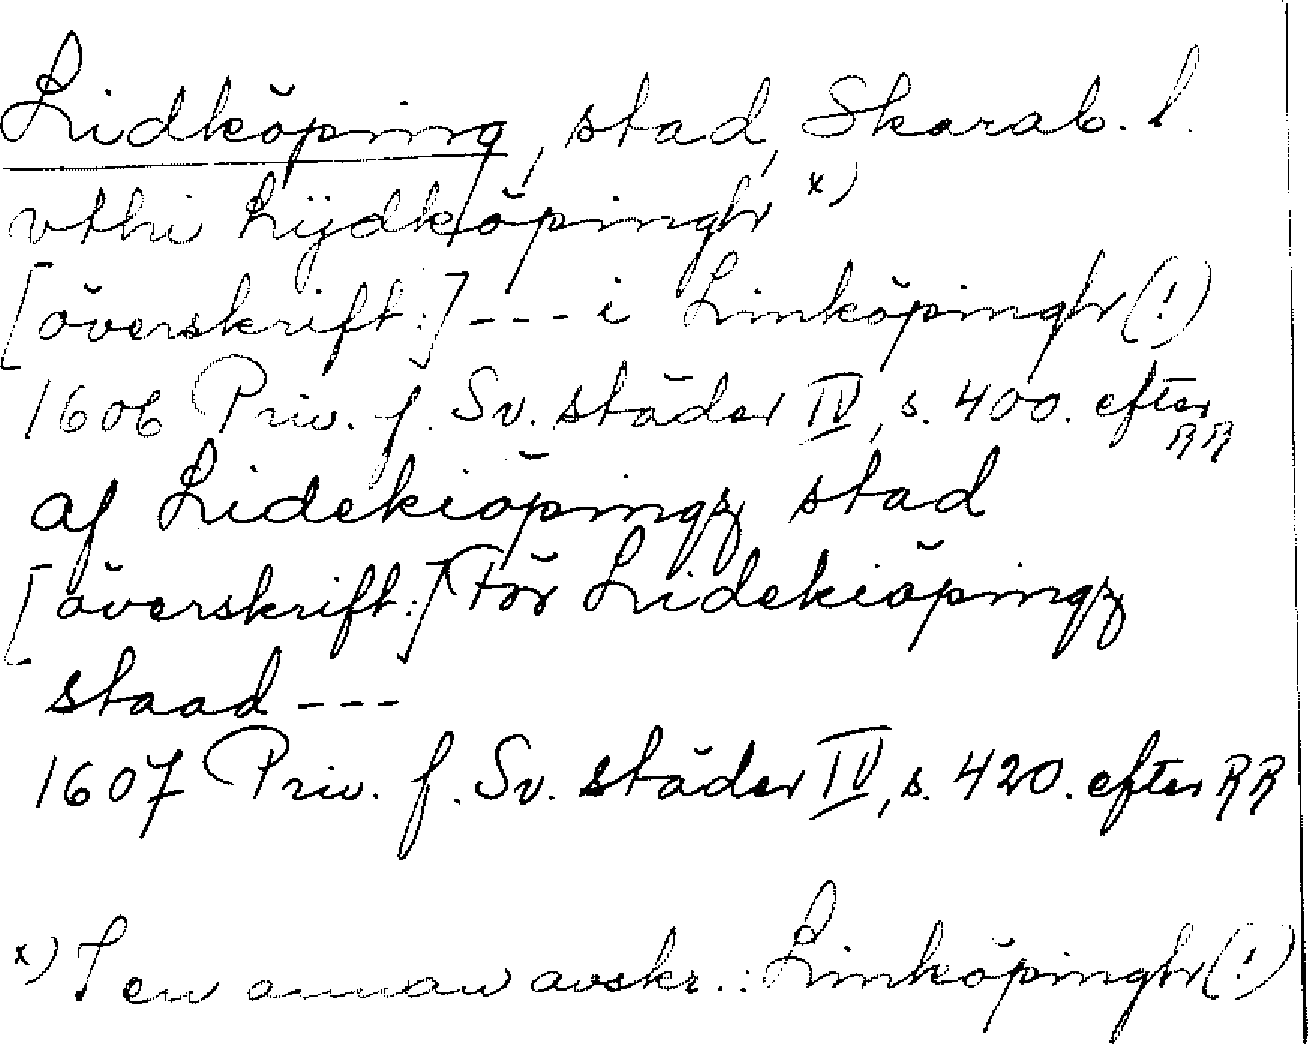 Lidköping, stad, Skarab. l.
vthi Lÿdköpingh x)
[överskrift:] --- i Linköpingh (!)
1606 Priv. f. Sv. städer IV, s. 400. efter RR
af Lidekiöpingz stad
[överskrift:] För Lidekiöpingz
staad ---
1607 Priv. f. Sv. städer IV, s. 420. efter RR
x) I en annan avskr.: Linköpingh (!)